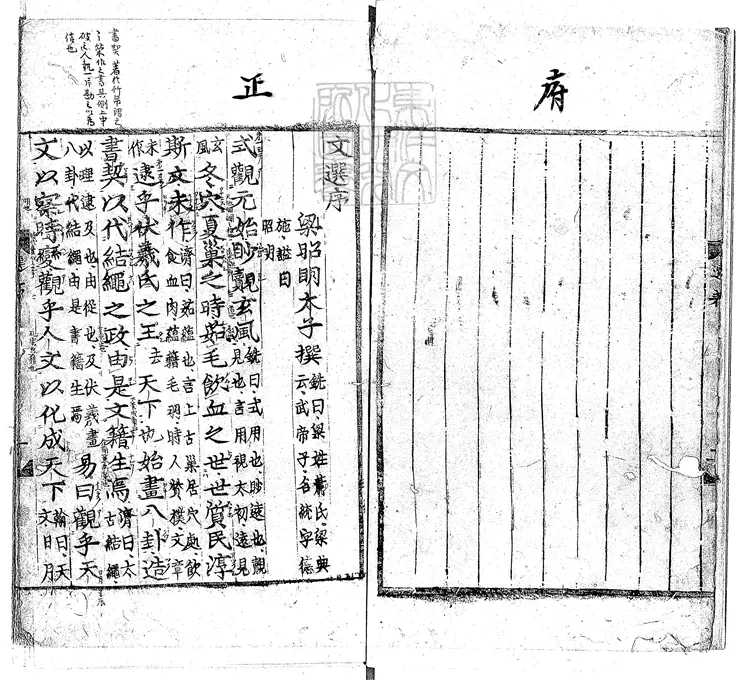 府
正
文選序
梁昭明太子撰銑曰梁姓蕭氏梁典云武帝子名統字德
施謚曰昭明
式觀元始眇覿玄風銑曰式用也眇遠也覿見也言用視太初遠見
玄風冬穴夏巢之時茹毛飲血之世世質民淳
斯文未作濟曰茹蘊也言上古巢居穴處飲食血肉蘊藉毛羽時人質樸文章
未作逮乎伏羲氏之王天下也始畫八卦造
書契以代結繩之政由是文籍生焉濟曰太古結繩
以理逮及也由從也及伏羲畫八卦代結繩由是書籍生焉易曰觀乎天
文以察時變觀乎人文以化成天下翰曰天文日月